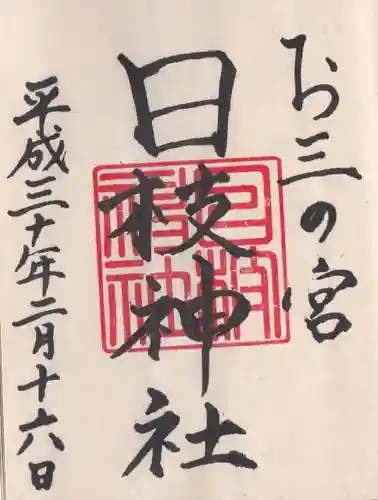 お三の宮
日枝神社
平成三十年二月十六日
日枝
神社